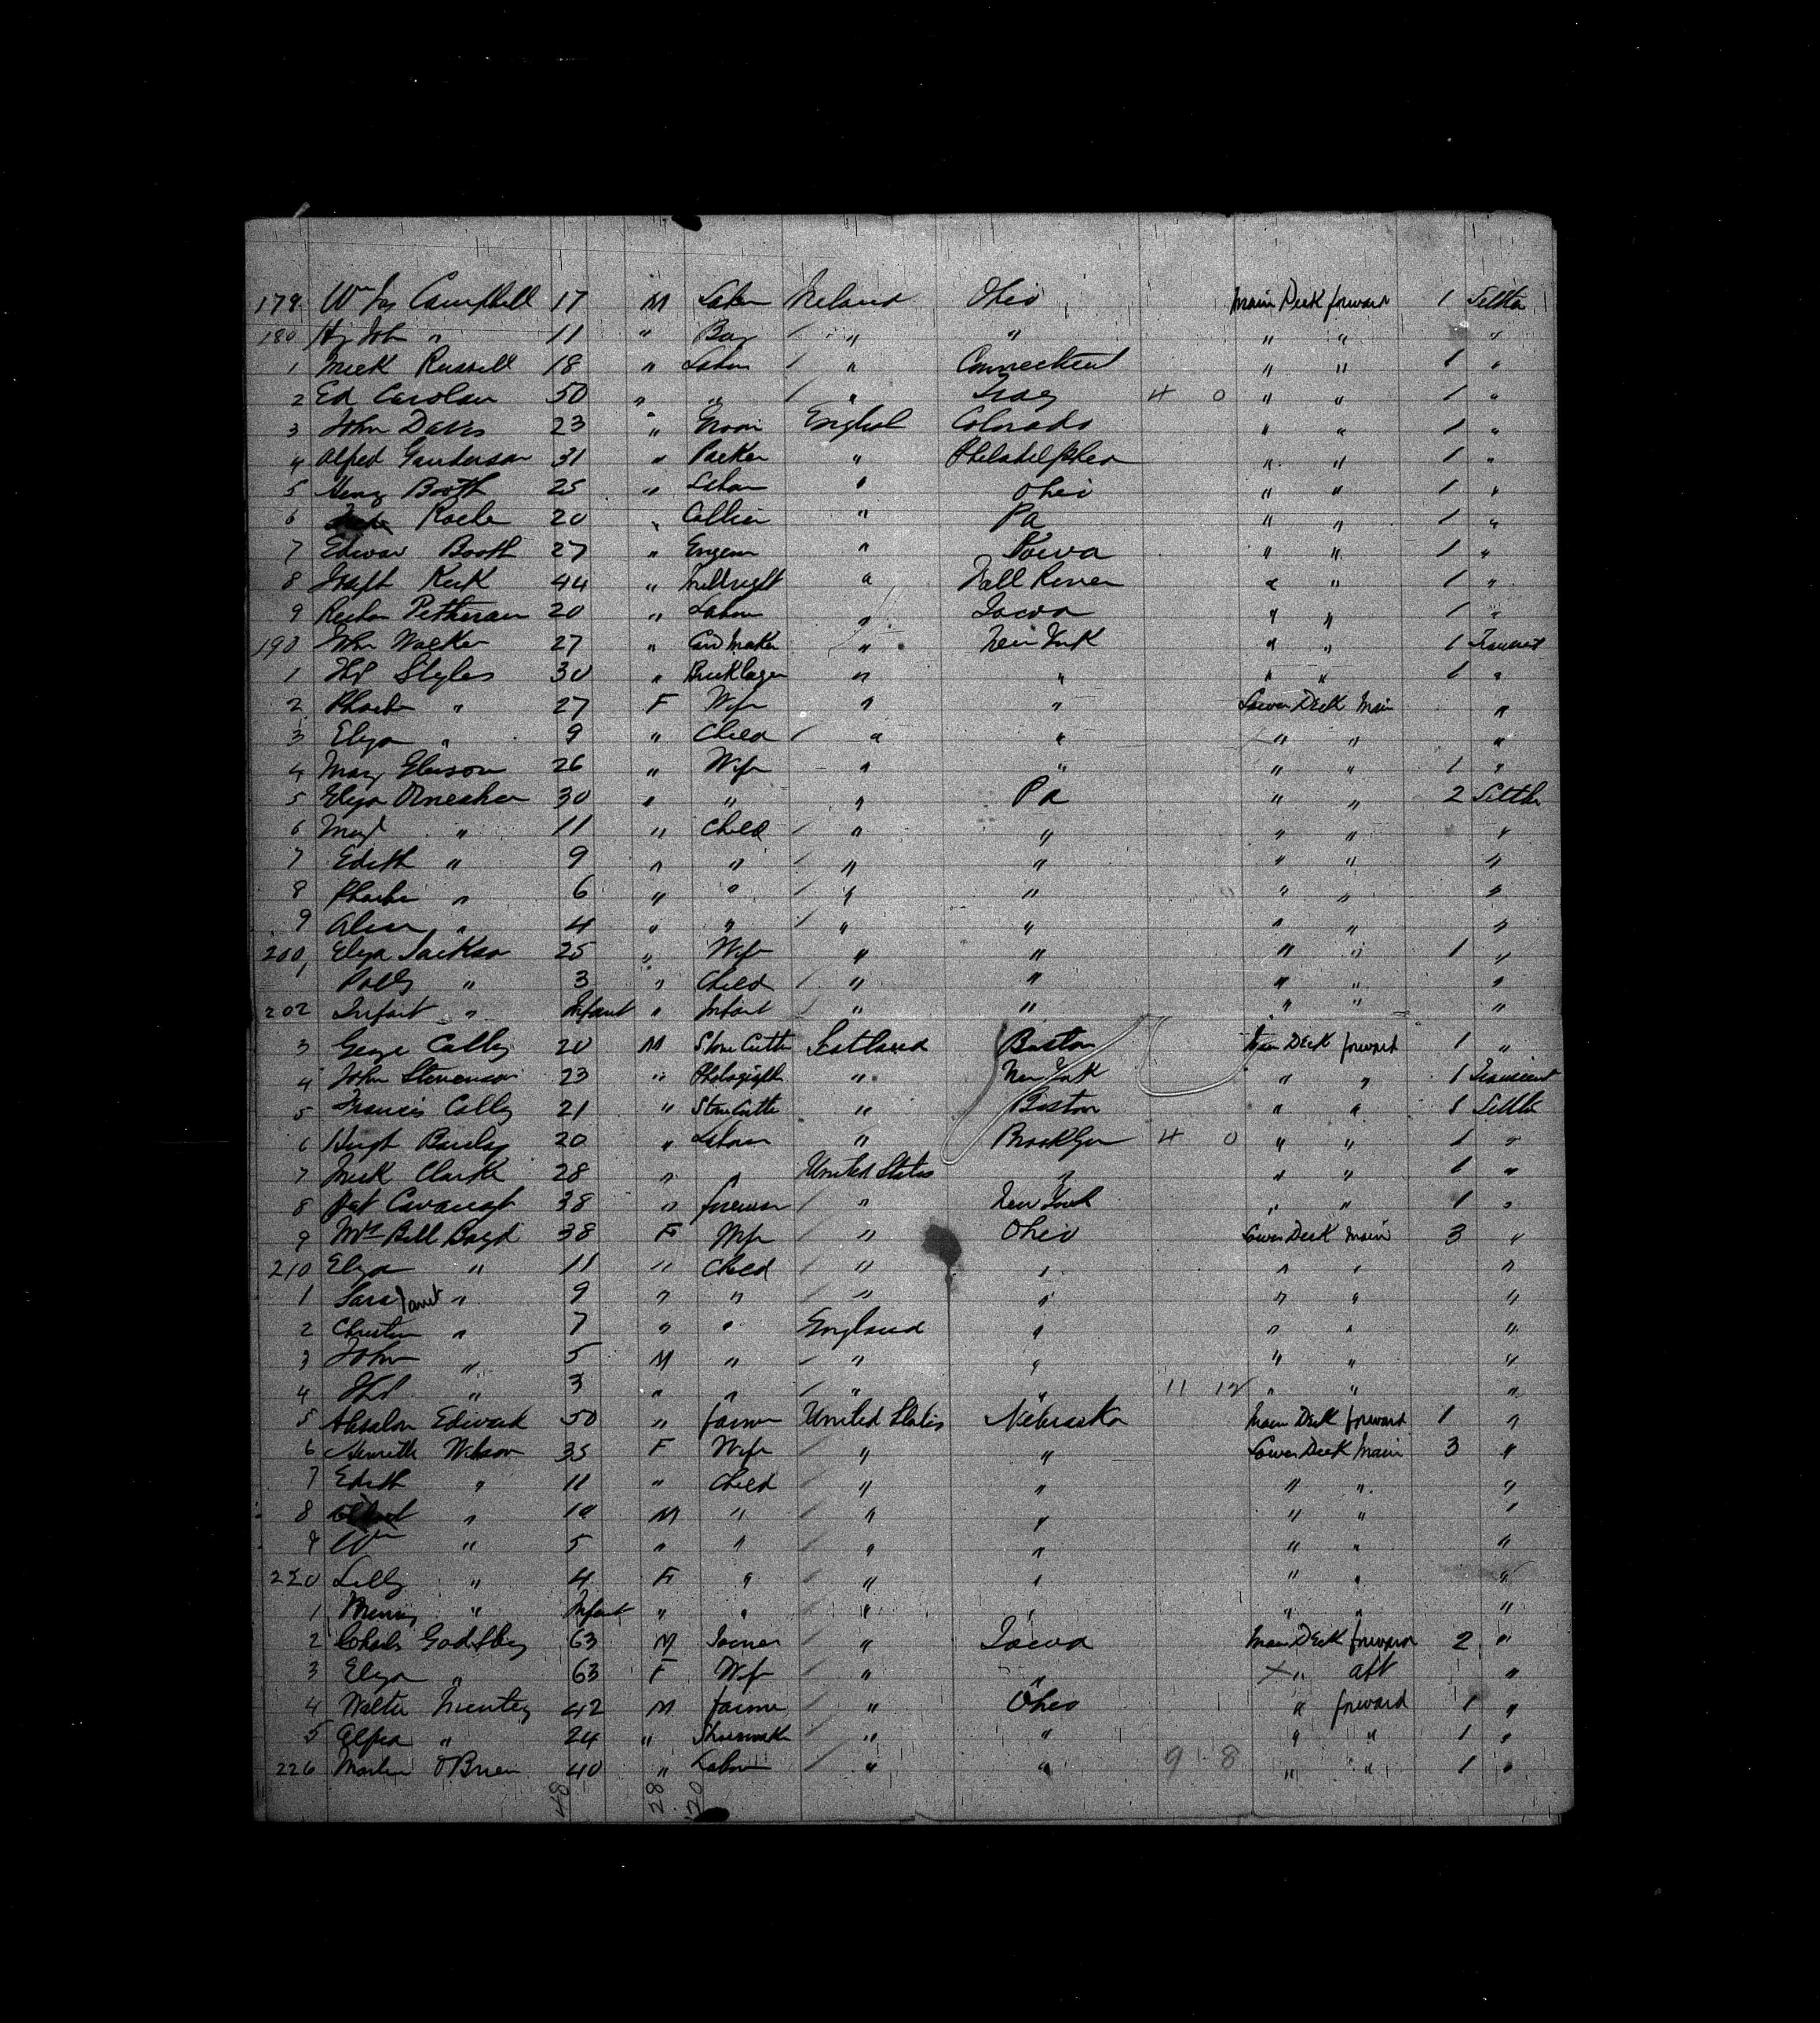 179 Wm Jas Campbell 17 M Labor Ireland Ohio Main Deck forward 1 Settler
180 Hy John " 11 " Boy " " " " "
1 Mick Russell 18 " Labor " Connecticut " " 1 "
2 Ed Carolan 50 " " " Troy 4 0 " " 1 "
3 John Davis 23 " Groom Englad Colorado " " 1 "
4 Alfred Gunderson 31 " Packer " Philadelphia " " 1 "
5 Henry Booth 25 " Labor " Ohio " " 1 "
6 20 " Collier " Pa " " 1 "
7 Edwar Booth 27 " Engeneer " Iowa " " 1 "
8 44 " Millwright " Fall River " " 1 "
9 Petheram 20 " Labor " Iowa " " 1 "
190 John Walker 27 " Maker " New York " " 1 Transient
1 Styles 30 " Bricklayer " " " " 1 "
2 Phoebe " 27 F Wife " " Lower Deck Main "
3 Eliza " 9 " Child " " " " "
4 Mary 26 " Wife " " " " 1 "
5 Eliza 30 " " " Pa " " 2 Settler
6 " 11 " Child " " " " "
7 Edith " 9 " " " " " " "
8 Phoebe " 6 " " " " " " "
9 Alice " 4 " " " " " " "
200 Eliza Jackson 25 " Wife " " " " 1 "
1 Polly " 3 " Child " " " " "
202 Infant " Infant " Infant " " " " "
3 George Colley 20 M Stone Cutter Scotland Boston Main Deck forward 1 "
4 John Stevenson 23 " " New York " " 1 Transient
5 Francis Colley 21 " Stone Cutter " Boston " " 1 Settler
6 Hugh Barclay 20 " Labour " Brooklyn 4 0 " " 1 "
7 Mick Clark 28 " " United States " " " 1 "
8 Pat Cavanagh 38 " foreman " New York " " 1 "
9 Mrs Bell Boyd 38 F Wife " Ohio Lower Deck Main 3 "
210 Eliza " 11 " Child " " " " "
1 Sara Janet " 9 " " " " " " "
2 Christin " 7 " " England " " " "
3 John " 5 M " " " " " "
4 " 3 " " " " 11 12 " " "
5 Absalom Edward 50 " farmer United States Nebraska Main Deck forward 1 "
6 Wilson 35 F Wife " " Lower Deck Main 3 "
7 Edith " 11 " Child " " " " "
8 " 10 M " " " " " "
9 Wm " 5 " " " " " " "
220 Lilly " 4 F " " " " " "
1 " Infant " " " " " " "
2 63 M " Iowa Main Deck forward 2 "
3 Eliza " 63 F Wife " " " aft "
4 Walter 42 M farmer " Ohio " forward 1 "
5 Alfred " 24 " Shoemaker " " " " 1 "
226 Martin OBrien 40 " Labour " " 9 8 " " 1 "
48 28 20